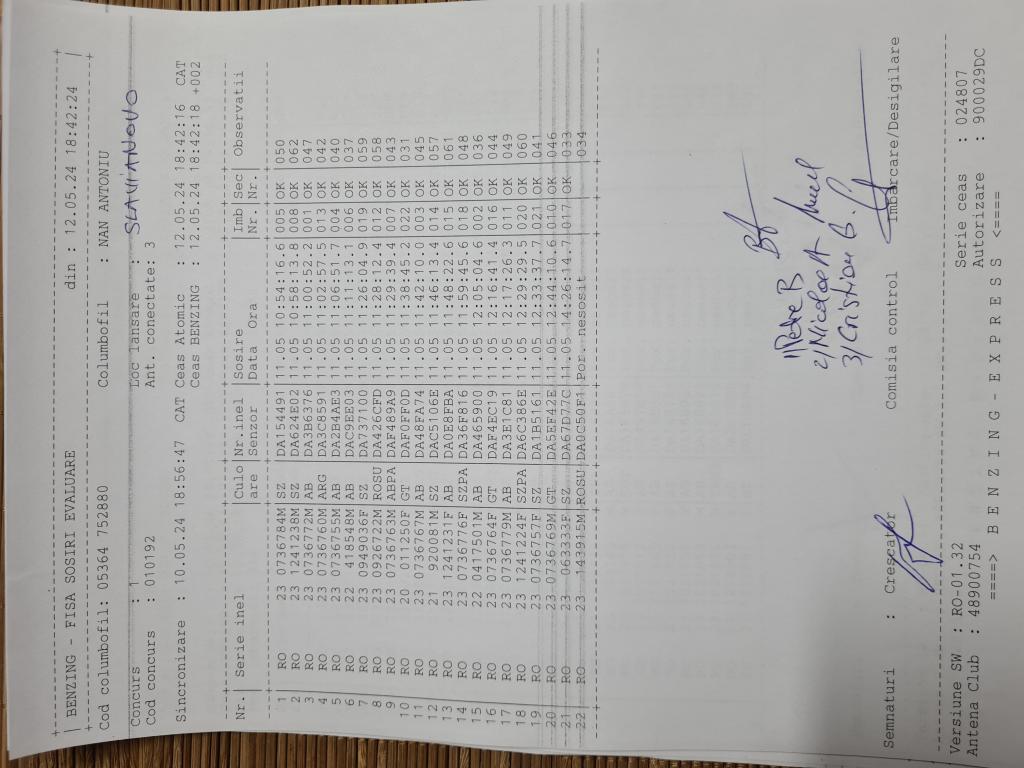 BENZING - FISA SOSIRI EVALUARE din : 12.05.24 18:42:24
Cod columbofil: 05364 752880 Columbofil : NAN ANTONIU
Concurs : 1 Loc lansare : SLAVIANOVO
Cod concurs : 010192 Ant. conectate: 3
Sincronizare : 10.05.24 18:56:47 CAT Ceas Atomic : 12.05.24 18:42:16 CAT
Ceas BENZING : 12.05.24 18:42:18 +002
Nr.| Serie inel |Culo|Nr.inel |Sosire |Imb|Sec| Observatii
|are |Senzor |Data Ora |Nr.|Nr.|
1 RO 23 0736784M SZ DA154491 11.05 10:54:16.6 005 OK 050
2 RO 23 1241238M SZ DA624E02 11.05 10:58:13.2 008 OK 062
3 RO 23 0736772M AB DA3B6376 11.05 11:00:52.2 001 OK 047
4 RO 23 0736760M ARG DA3C8591 11.05 11:02:57.5 013 OK 042
5 RO 23 0736755M AB DA2B4AE3 11.05 11:04:51.7 004 OK 040
6 RO 22 418548M AB DAC9EE03 11.05 11:11:13.1 006 OK 037
7 RO 23 0949036F SZ DA737100 11.05 11:26:04.9 019 OK 059
8 RO 23 0926722M ROSU DA426CFD 11.05 11:28:12.4 012 OK 058
9 RO 23 0736763M ABPA DAF489A9 11.05 11:29:39.4 007 OK 043
10 RO 20 0112550F GT DAF07F0D 11.05 11:38:45.2 022 OK 031
11 RO 23 0736767M AB DA48FA74 11.05 11:42:10.0 003 OK 045
12 RO 21 920081M SZ DAC5106E 11.05 11:46:19.4 014 OK 057
13 RO 23 1241231F AB DA0E8FBA 11.05 11:48:22.6 015 OK 061
14 RO 23 0736776F SZPA DA36F816 11.05 11:59:45.6 018 OK 048
15 RO 22 0417501M AB DA465900 11.05 12:05:04.6 002 OK 036
16 RO 23 0736764F GT DAF4EC19 11.05 12:16:41.4 016 OK 044
17 RO 23 0736779M AB DA3E7C81 11.05 12:17:26.3 011 OK 049
18 RO 23 1241224F SZPA DA6C386E 11.05 12:29:29.5 020 OK 060
19 RO 23 0736757F SZ DA1B5161 11.05 12:33:37.7 021 OK 041
20 RO 23 0736769M GT DA5EF42E 11.05 12:44:10.6 010 OK 046
21 RO 23 06333F SZ DA67D77C 11.05 14:26:14.7 017 OK 033
22 RO 23 143915M ROSU DA0C50F1 Por. nesosit 034
1) Petre B
2) Nicolae A
3) Cristian G.
Semnaturi : Crescator Comisia control Imbarcare/Desigilare
Versiune SW : RO-01.32 Serie ceas : 024807
Antena Club : 48900754 Autorizare : 900029DC
====> B E N Z I N G - E X P R E S S <====